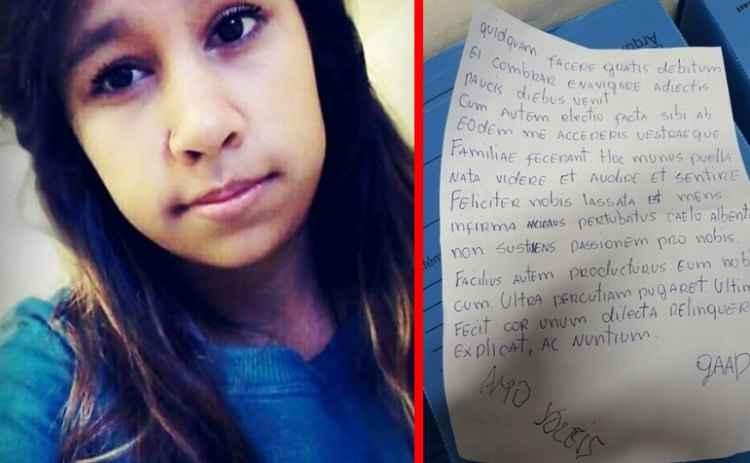 quidquam facere gratis debitum
Ei combrar enavigare adiectis
paucis diebus venit
Cum autem electio facta sibi ab
Eodem me accederis vestrae que
Familiae fecerant Hoc munus puella
nata videre et audire et sentire
Feliciter nobis lassata et mens
infirma pertubatus caelo albent
non sustiens passionem pro nobis.
Facilius autem producturus eum nob
cum. Ultra percutiam pugaret Ultim
Fecit cor unum dilecta delinquer
Explicat, ac nuntium.
GAAD